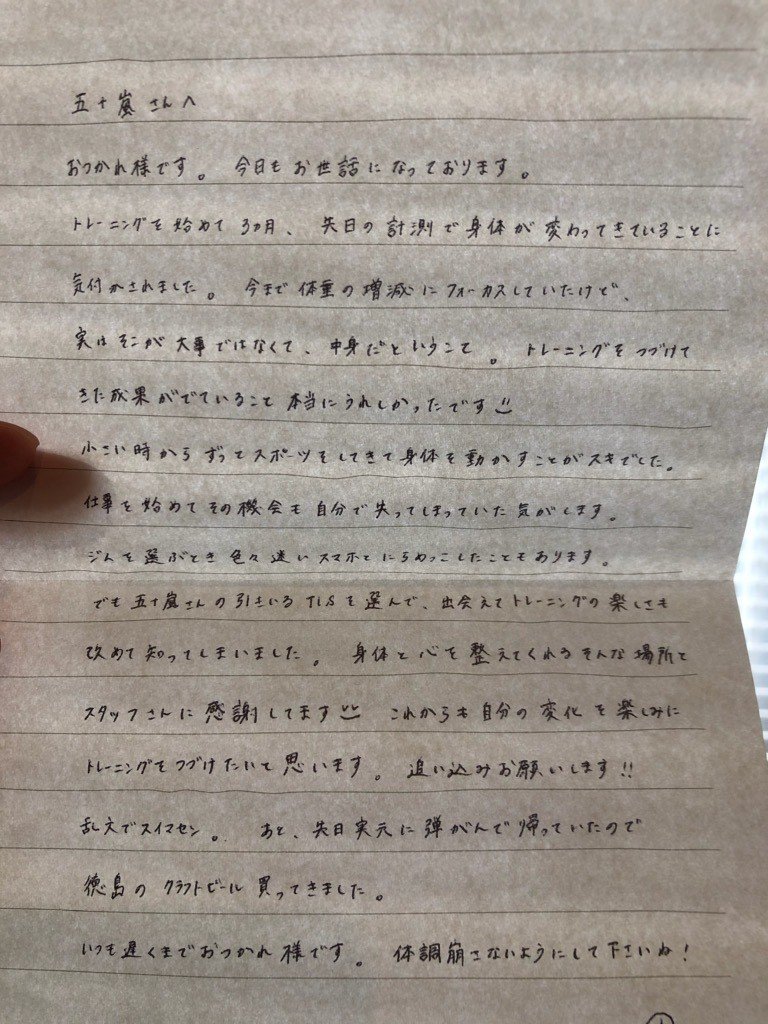 五十嵐さんへ
おつかれ様です。 今日もお世話になっております。
トレーニングを始めて3カ月、 先日の計測で身体が変わってきていることに
気付かされました。 今まで体重の増減にフォーカスしていたけど、
実はそこが大事ではなくて、中身だということ。 トレーニングをつづけて
きた成果がでていること本当にうれしかったです
小さい時からずっとスポーツをしてきて身体を動かすことがスキでした。
仕事を始めてその機会も自分で失ってしまっていた気がします。
ジムを選ぶとき色々迷いスマホとにらめっこしたこともあります。
でも五十嵐さんの引きいるTLSを選んで、出会えてトレーニングの楽しさも
改めて知ってしまいました。 身体と心を整えてくれるそんな場所と
スタッフさんに感謝してます これからも自分の変化を楽しみに
トレーニングをつづけたいと思います。 追い込みお願いします!!
乱文でスイマセン。 あと、先日実元に弾がんで帰っていたので
徳島のクラフトビール買ってきました。
いつも遅くまでおつかれ様です。 体調崩さないようにして下さいね!